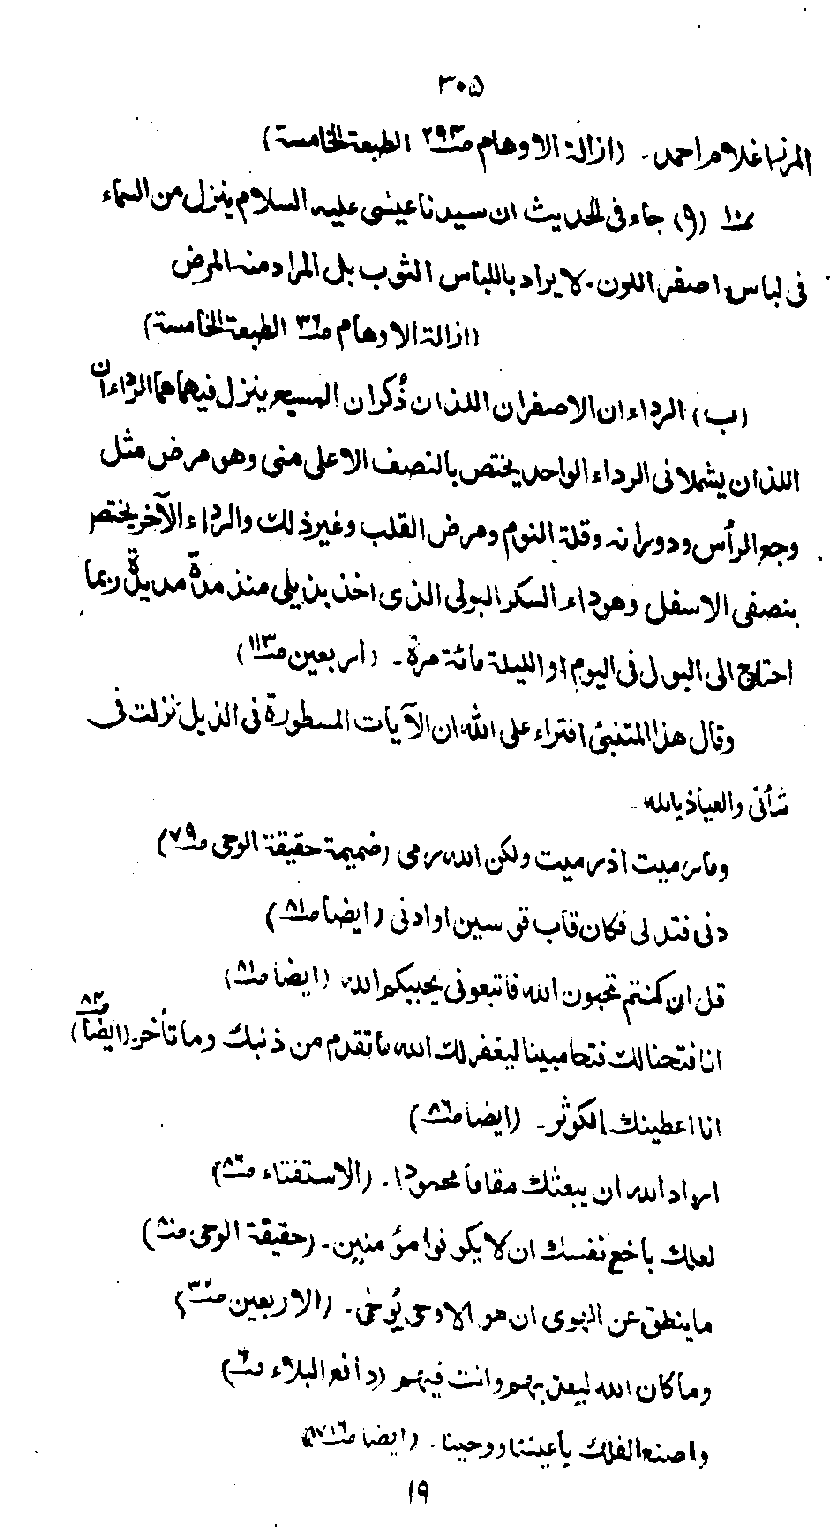 ۳۰۵
المرزا غلام احمد۔ (ازالة الاوهام ص۲۹۳ الطبعة الخامسة)
۱۰ (۹) جاء فی الحدیث ان سیدنا عیسی علیه السلام ینزل من السماء
فی لباس اصفر اللون۔ لا یراد باللباس الثوب بل المراد منه المرض
(ازالة الاوهام ص۳۶ الطبعة الخامسة)
(ب) الرداءان الاصفران اللذان ذُکر ان المسیح ینزل فیهما هما الرداءان
اللذان یشملانی الرداء الواحد یختص بالنصف الاعلی منی وهو مرض مثل
وجع الرأس ودورانه وقلة النوم ومرض القلب وغیر ذلك والرداء الآخر یختص
بنصفی الاسفل وهو داء السکر البولی الذی اخذ بذیلی منذ مدّة مدیدة ربما
احتاج الی البول فی الیوم او اللیلة مائة مرة۔ (اربعین ص۱۱۳)
وقال هذا المتنبئ افتراء علی الله ان الآیات المسطورة فی الذیل نزلت فی
شأنی والعیاذ بالله۔
وما رمیت اذ رمیت ولکن الله رمی (ضمیمة حقیقة الوحی ص۷۹)
دنی فتدلی فکان قاب قوسین او ادنی (ایضا ص۸۱)
قل ان کنتم تحبون الله فاتبعونی یحببکم الله (ایضا ص۸۱)
انا فتحنا لك فتحا مبینا لیغفر لك الله ما تقدم من ذنبك وما تأخر (ایضاً ص۸۳)
انا اعطینك الکوثر۔ (ایضا ص۸۶)
اراد الله ان یبعثك مقاما محمودا۔ (الاستفتاء ص۸۶)
لعلك باخع نفسك ان لا یکونوا مؤمنین۔ (حقیقة الوحی ص۸۰)
ما ینطق عن الهوی ان هو الا وحی یُوحٰی۔ (الاربعین ص۳۶)
وما کان الله لیعذبهم وانت فیهم (دافع البلاء ص۶)
واصنع الفلك باعیننا ووحینا۔ (ایضا
۱۹